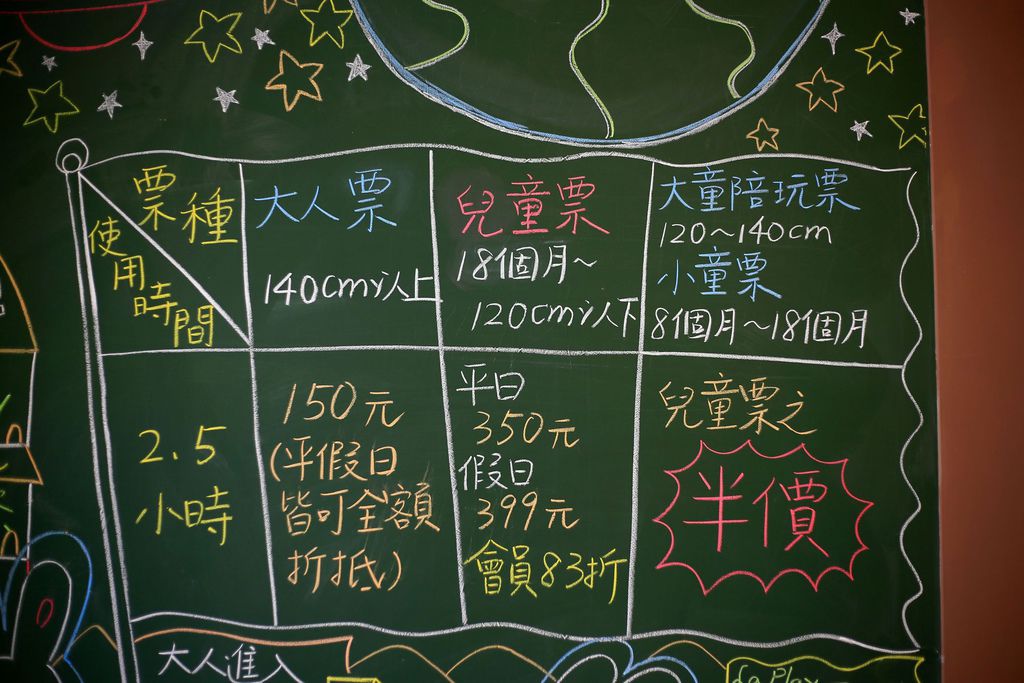 票種
使用時間
大人票
140cm以上
兒童票
18個月~
120cm以下
大童陪玩票
120~140cm
小童票
8個月~18個月
2.5
小時
150元
(平假日
皆可全額
折抵)
平日
350元
假日
399元
會員83折
兒童票之
半價
大人進入